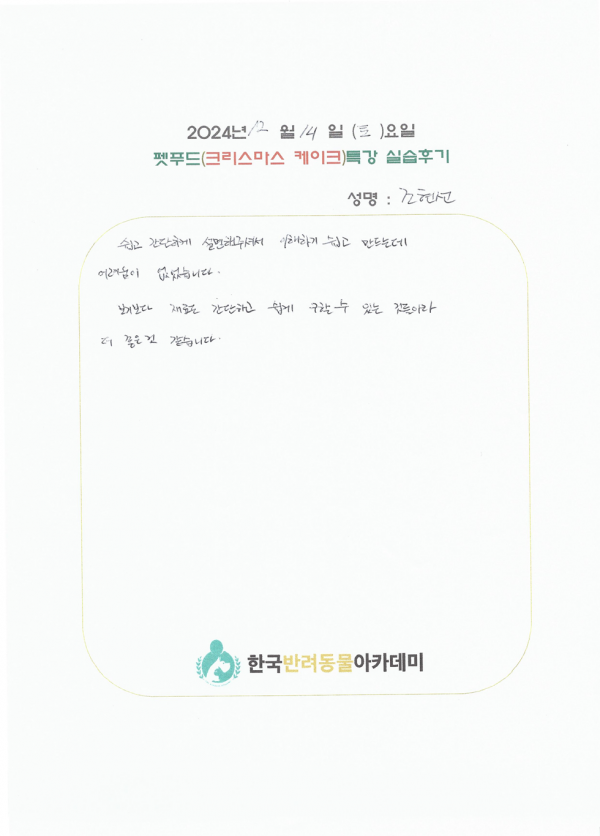 2024년 12 월 14 일 (토)요일
펫푸드(크리스마스 케이크)특강 실습후기
성명 : 조현선
쉽고 간단하게 설명해주셔서 이해하기 쉽고 만드는데
어려움이 없었습니다.
보기보다 재료도 간단하고 쉽게 구할 수 있는 것들이라
더 좋은 것 같습니다.
한국반려동물아카데미